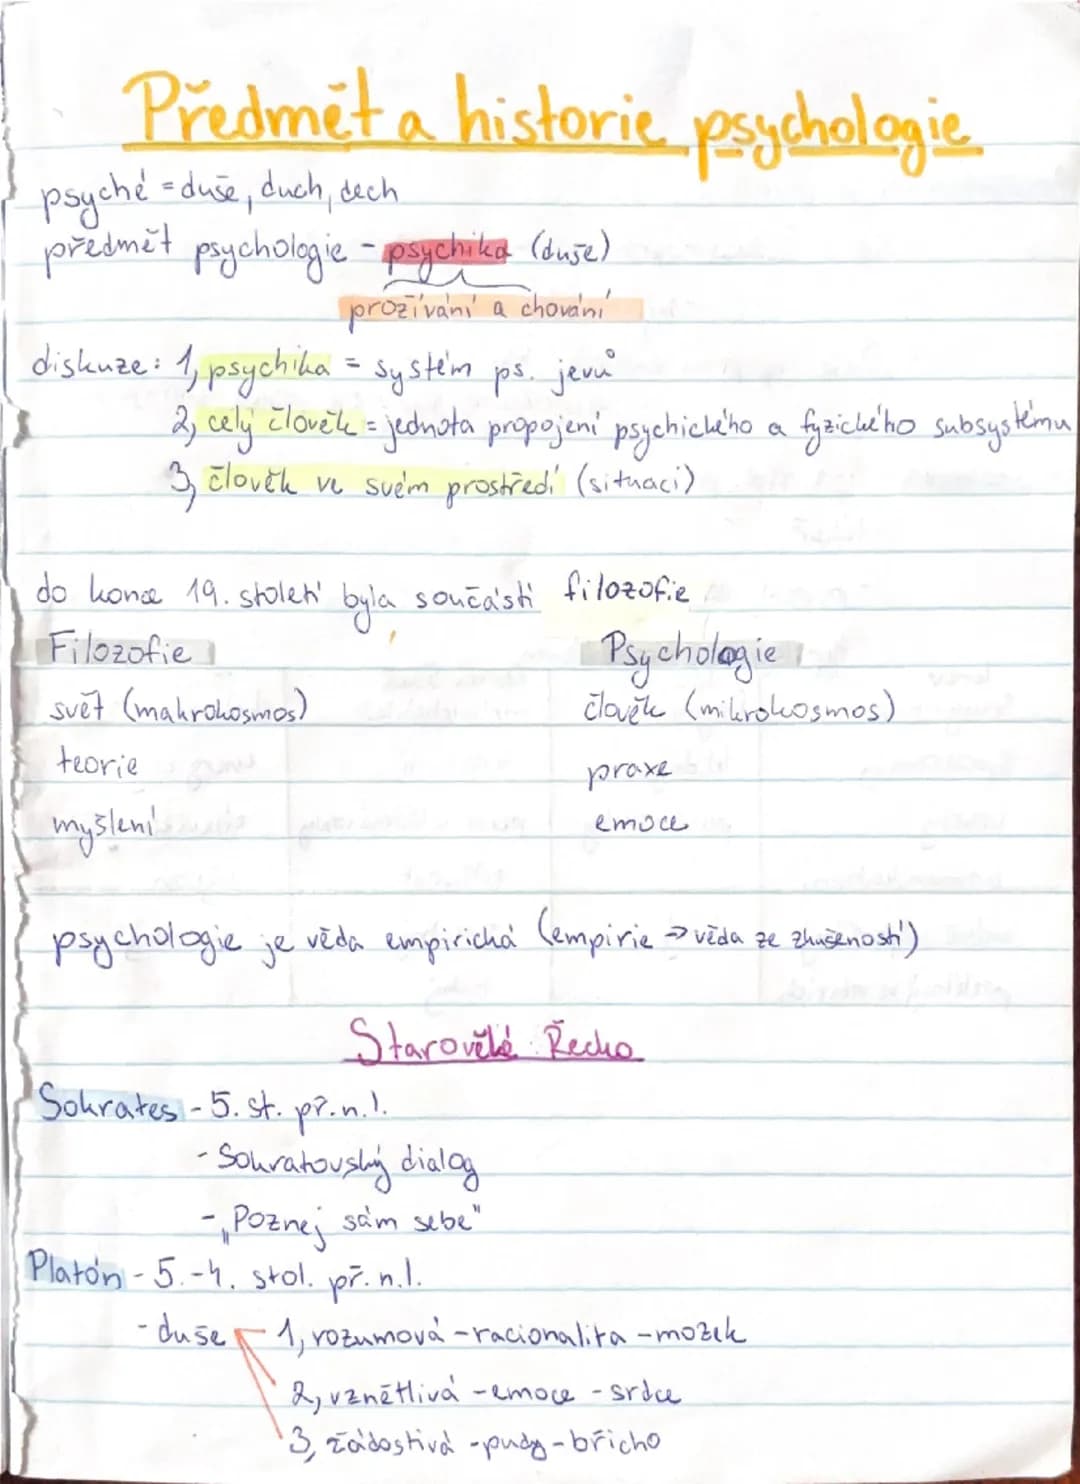 Předmět a historie psychologie
psyché = duše, duch, dech
předmět psychologie - psychika (duše)
prožívání a chování
diskuze: 1, psychika = systém ps. jevů
2, celý člověk = jednota propojení psychického a fyzického subsystému
3, člověk ve svém prostředí (situaci)
do konce 19. století byla součástí filozofie
Filozofie Psychologie
svět (makrokosmos) člověk (mikrokosmos)
teorie praxe
myšlení emoce
psychologie je věda empirická (empirie → věda ze zkušeností)
Starověké Řecko
Sokrates - 5. st. př.n.l.
- Sokratovský dialog
- „Poznej sám sebe"
Platón - 5.-4. stol. př.n.l.
- duše 1, rozumová - racionalita - mozek
2, vznětlivá - emoce - srdce
3, žádostivá - pudy - břicho